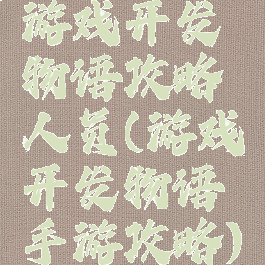 游戏开发
物语攻略
人员(游戏
开发物语
手游攻略)